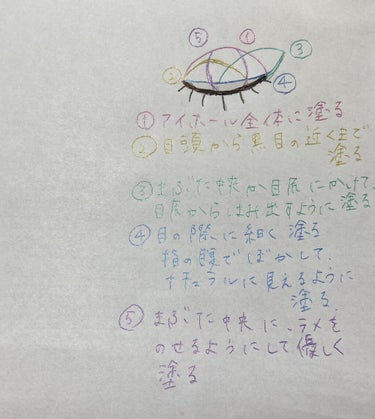 ⑤ ① ③
② ④
①アイホール全体に塗る
②目頭から黒目の近くまで
塗る
③まぶた中央か目尻にかけて、
目尻からはみ出すように塗る
④目の際に細く塗る
指の腹でぼかして、
ナチュラルに見えるように
塗る。
⑤まぶた中央に、ラメを
のせるようにして優しく
塗る